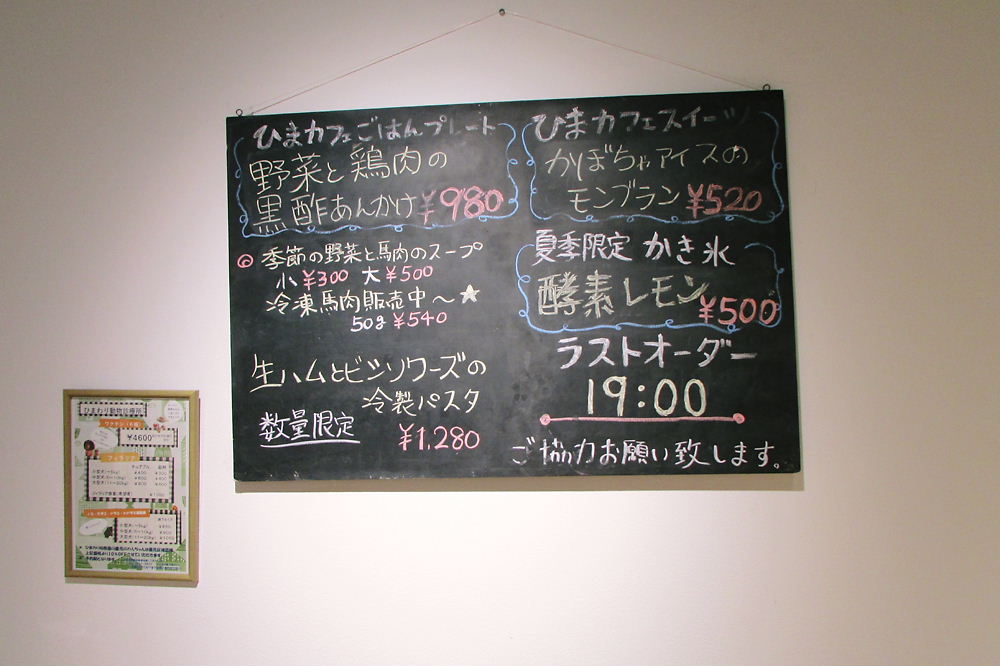 ひまカフェごはんプレート
野菜と鶏肉の
黒酢あんかけ ¥980
季節の野菜と馬肉のスープ
小 ¥300 大 ¥500
冷凍馬肉販売中〜★
50g ¥540
生ハムとビシソワーズの
冷製パスタ
数量限定
¥1,280
ひまカフェスイーツ
かぼちゃアイスの
モンブラン ¥520
夏季限定 かき氷
酵素レモン ¥500
ラストオーダー
19:00
ご協力お願い致します。
ひまわり動物診療所
ワクチン(6種)
¥4600
フィラリア